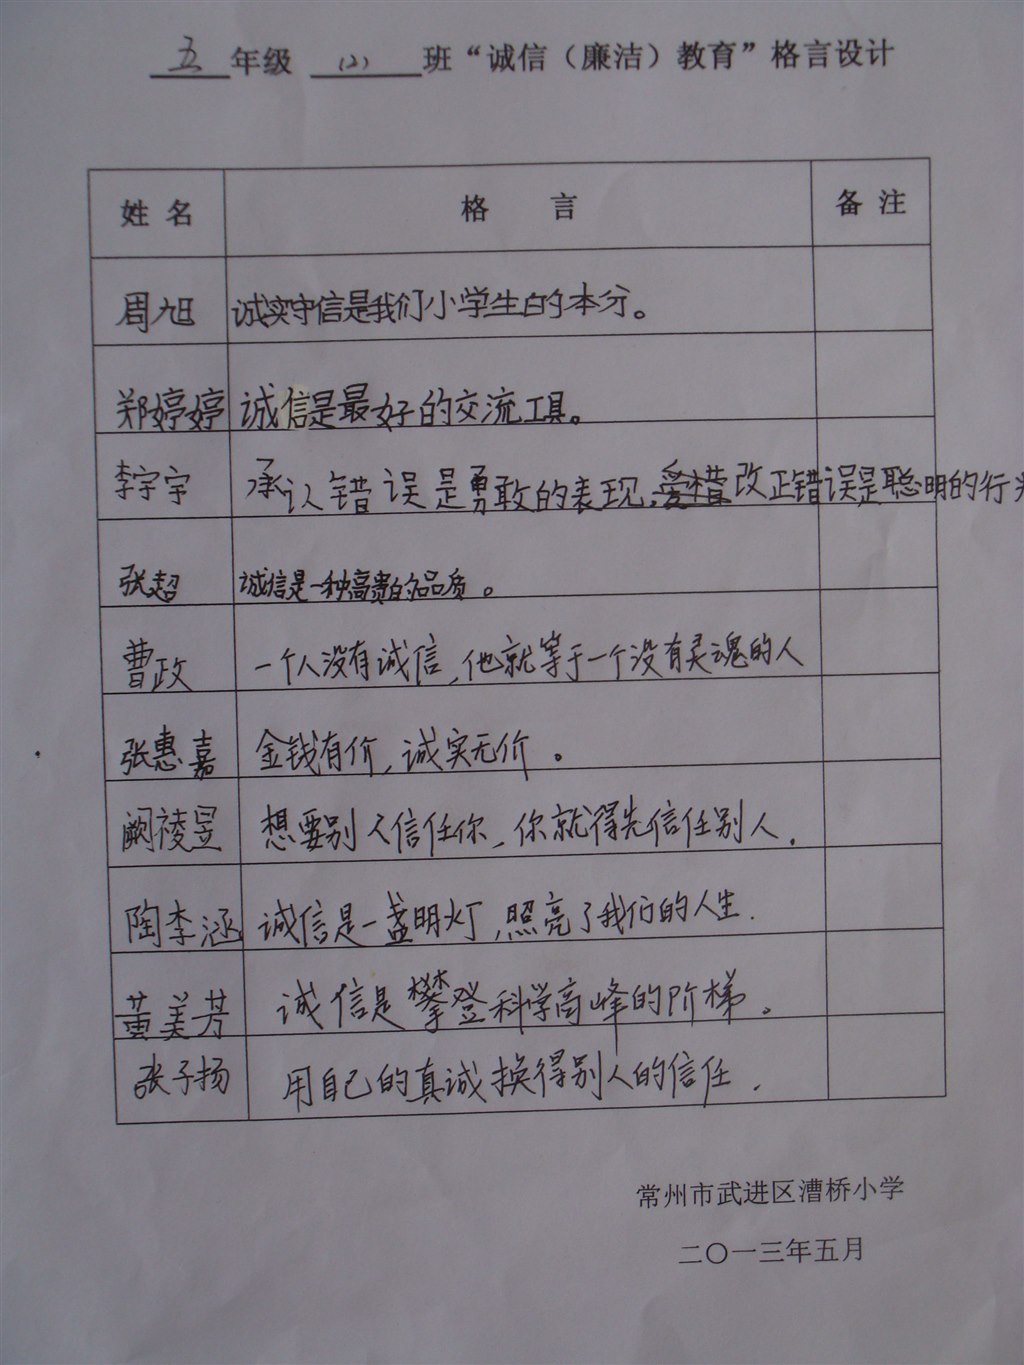 五年级 (2) 班“诚信（廉洁）教育”格言设计
姓 名 格 言 备 注
周旭 诚实守信是我们小学生的本分。
郑婷婷 诚信是最好的交流工具。
李宇宇 承认错误是勇敢的表现,改正错误是聪明的行
张超 诚信是一种高贵的品质。
曹政 一个人没有诚信,他就等于一个没有灵魂的人
张惠嘉 金钱有价,诚实无价。
阚祾昱 想要别人信任你,你就得先信任别人.
陶李涵 诚信是一盏明灯,照亮了我们的人生.
黄美芳 诚信是攀登科学高峰的阶梯。
张子扬 用自己的真诚换得别人的信任.
常州市武进区漕桥小学
二〇一三年五月